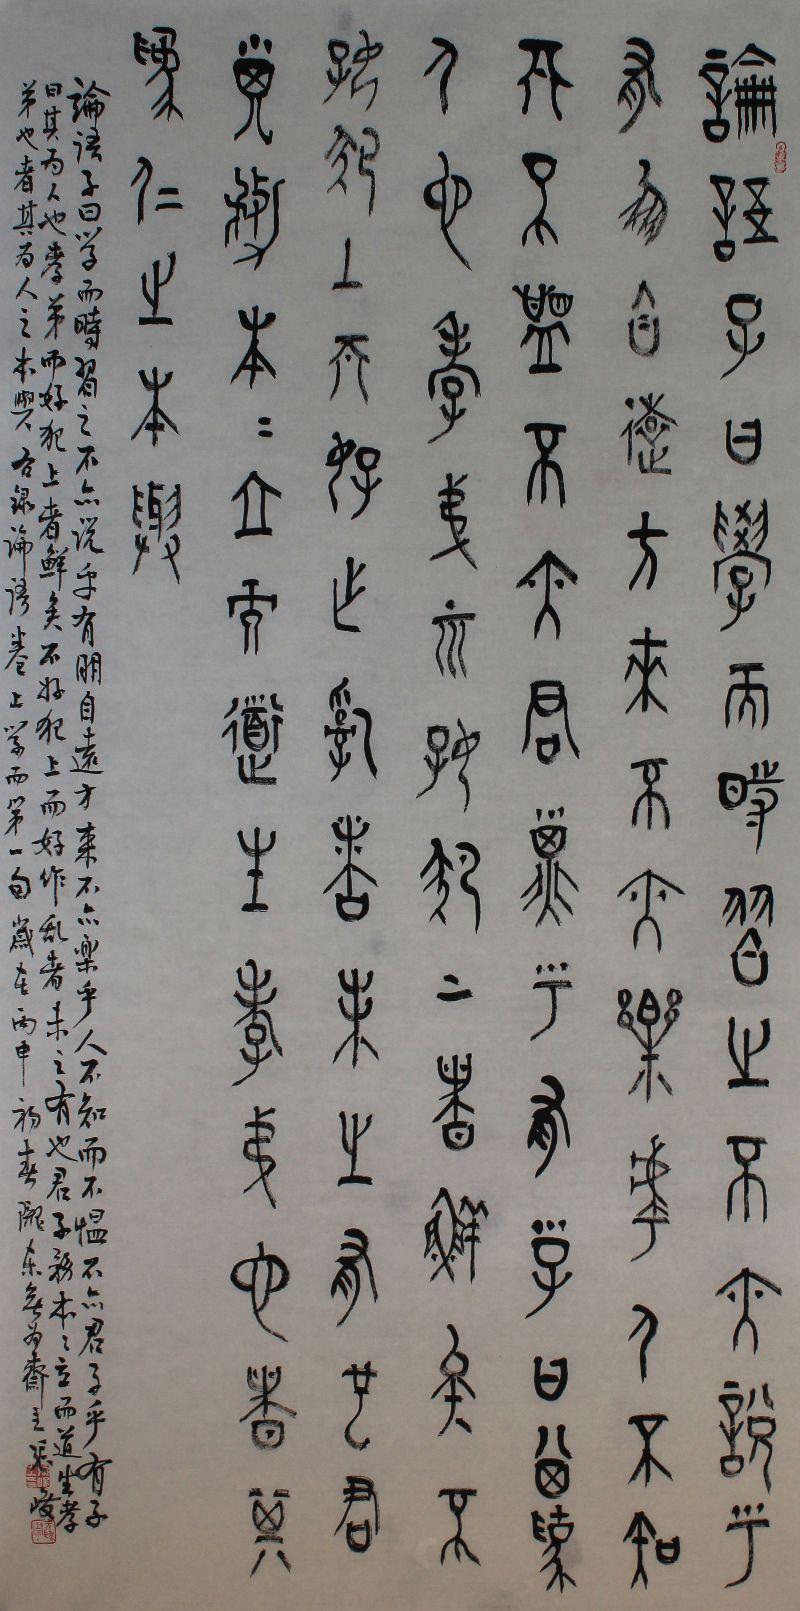 論語子曰學而時習之不亦說乎
有朋自遠方來不亦樂乎人不知
而不慍不亦君子乎有子曰其為
人也孝弟而好犯上者鮮矣不
好犯上而好作亂者未之有也君
子務本二立而道生孝弟也者其
為仁之本與
論語子曰学而時習之不亦说乎有朋自遠方来不亦樂乎人不知而不愠不亦君子乎有子
曰其为人也孝弟而好犯上者鮮矣不好犯上而好作乱者未之有也君子務本々立而道生孝
弟也者其为人之本與右録論语卷上学而第一句歲在丙申初春隴东無为齋主張